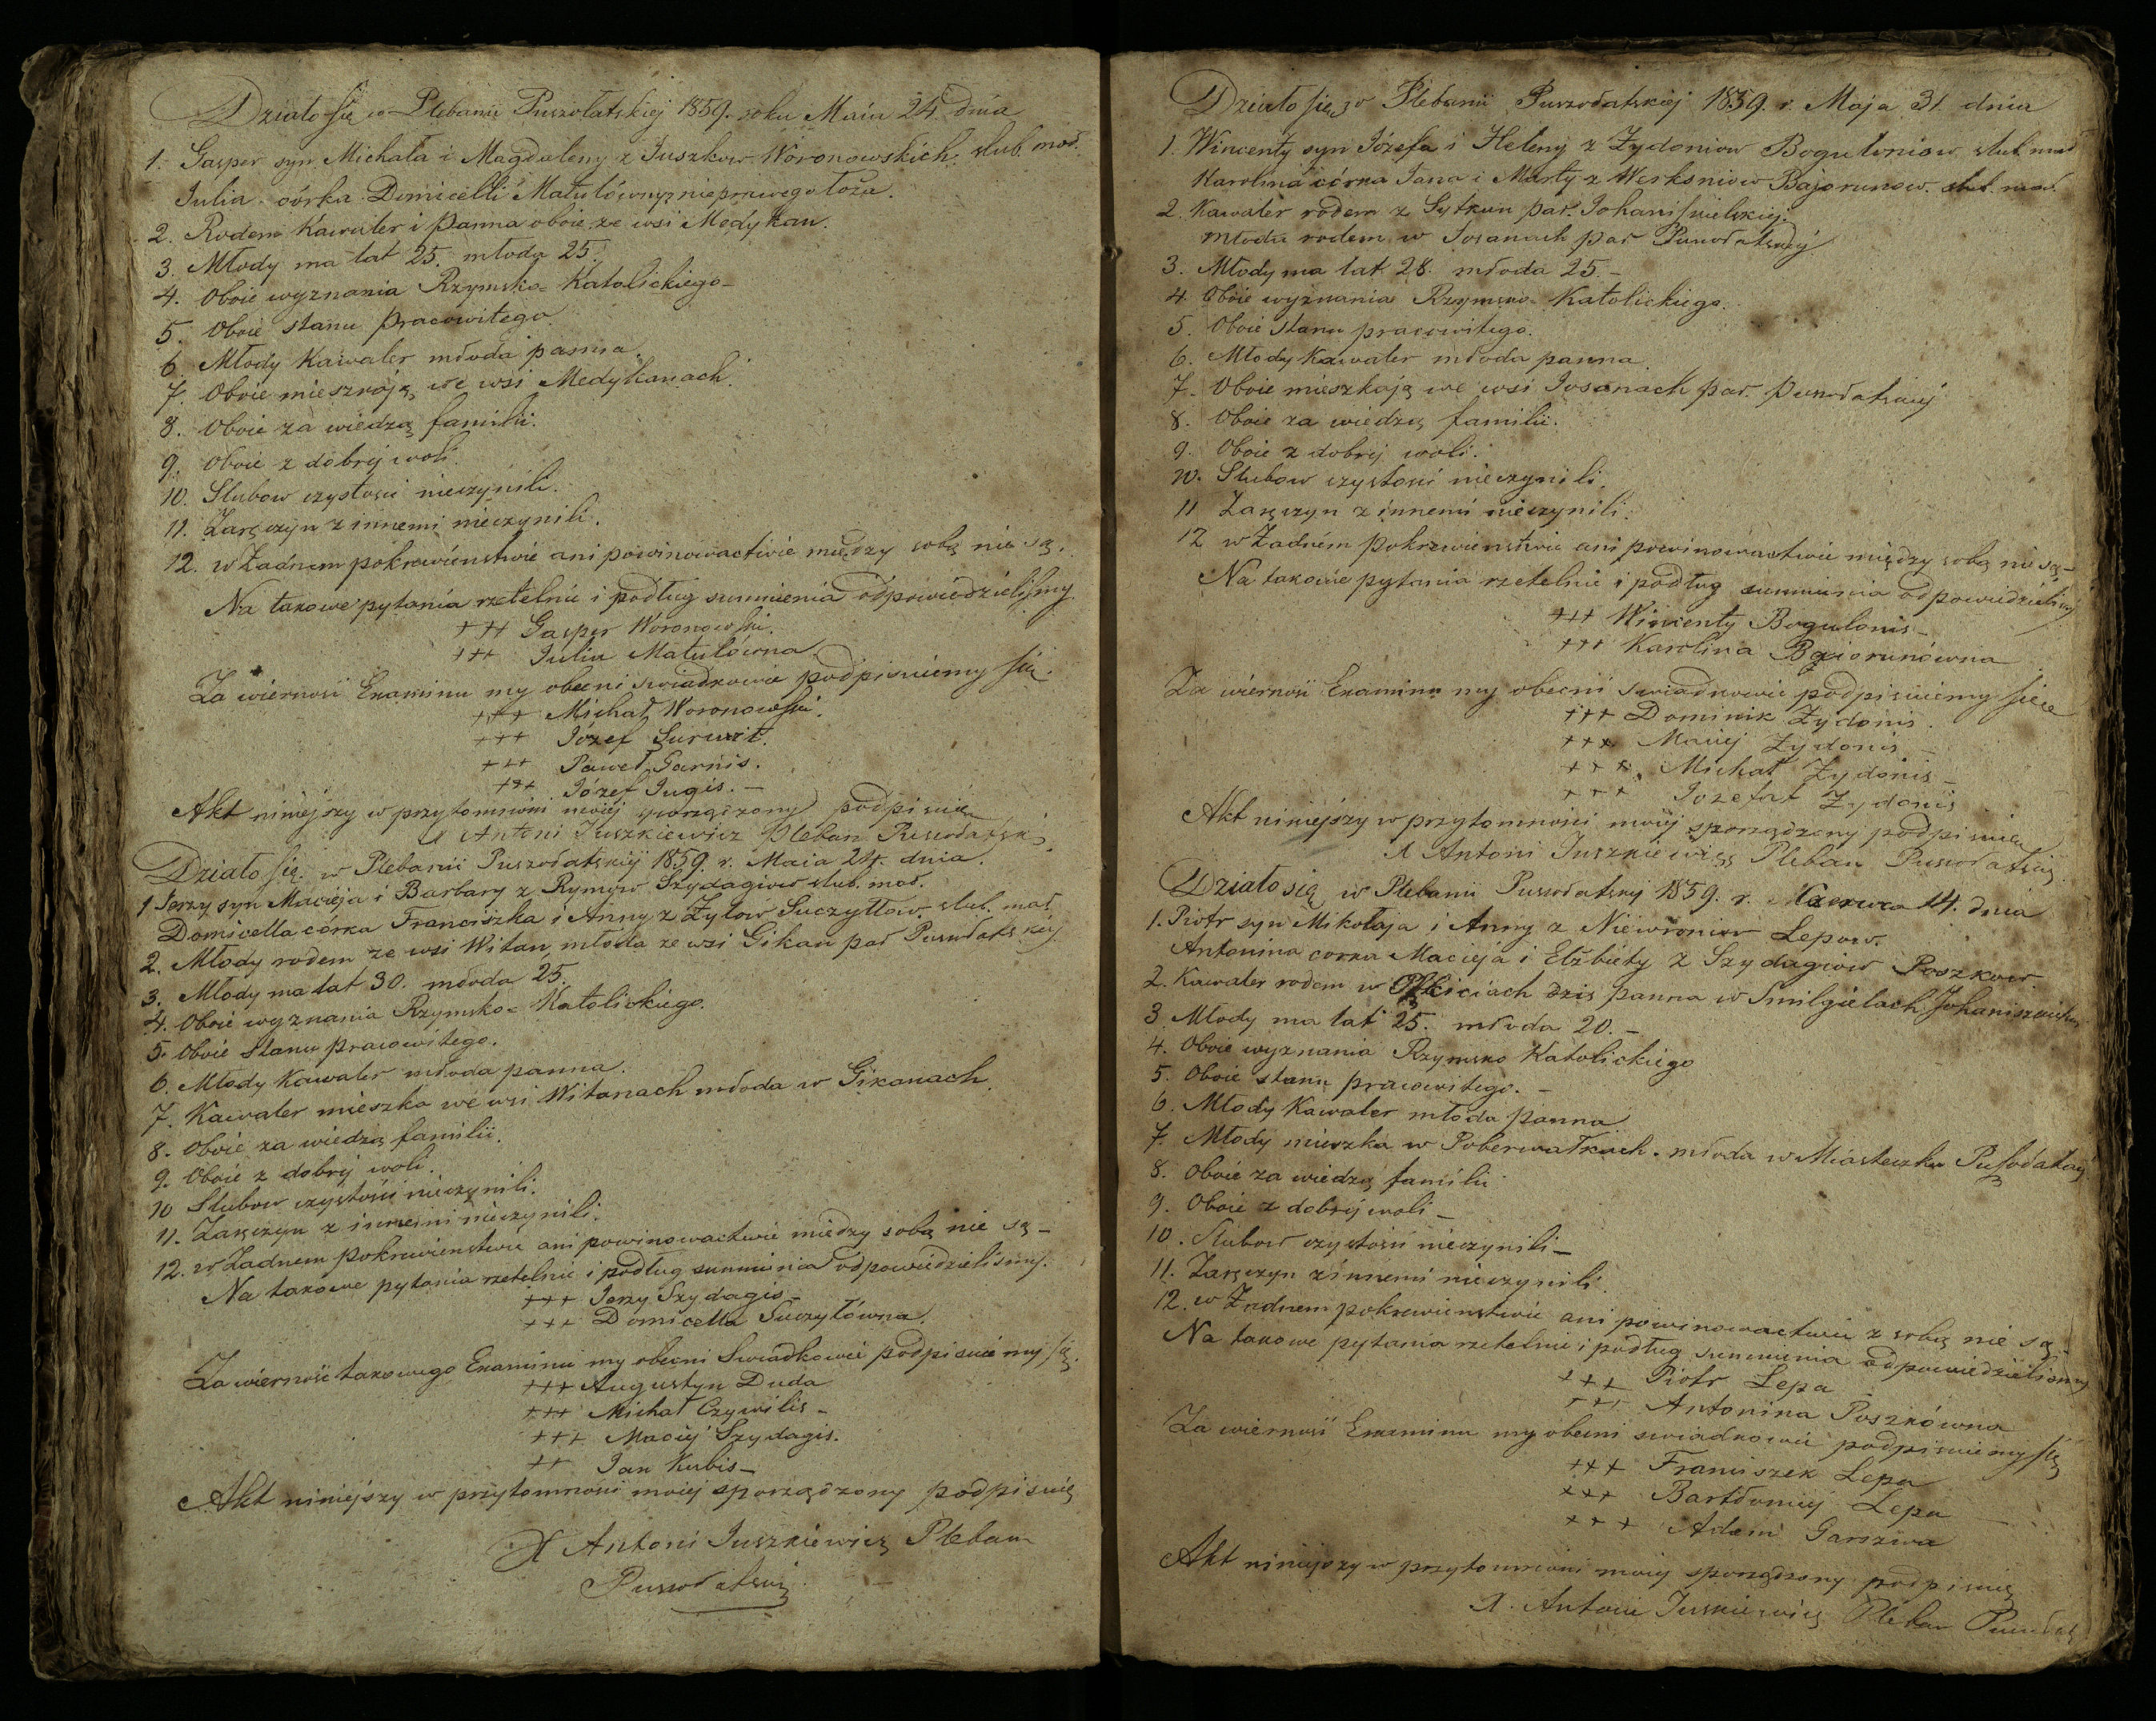 Działo się w Plebanii Puszołatskiej 1859. roku Maia 24 dnia
1. Gasper syn Michała i Magdaleny z Juszkow Woronowskich. slub. mał.
Julia córka Domicelli Matulówny z nieprawego łoża.
2. Rodem Kawaler i Panna oboie ze wsi Medykan.
3. Młody ma lat 25. młoda 25.
4. Oboie wyznania Rzymsko-Katolickiego-
5. Oboie stanu Pracowitego
6 Młody Kawaler młoda panna.
7. Oboie mieszkają we wsi Medykanach.
8. Oboie za wiedzą familii.
9. Oboie z dobrej woli.
10. Slubow czystosci nieczynili.
11. Zaręczyn z innemi nieczynili.
12. w Żadnem pokrewienstwie ani powinowactwie między sobą nie są.
Na takowe pytania rzetelnie i podług sumnienia odpowiedzielismy
+++ Gasper Woronowski.
+++ Julia Matulówna
Za wiernosć Examinu my obecni swiadkowie podpisuiemy się.
+++ Michał Woronowski.
+++ Józef Surwit.
+++ Paweł Garnis.
+++ Józef Jugis. -
Akt niniejszy w przytomnosci moiej sporządzony podpisuię
X Antoni Juszkiewicz Pleban Puszołatski.
Działo się w Plebanii Puszołatskiej 1859. r. Maia 24. dnia.
1 Jerzy syn Macieja i Barbary z Rymow Szydagiow slub. mał.
Domicella córka Franciszka i Anny z Żyłow Suczyłłow. slub. mał.
2. Młody rodem ze wsi Witan, młoda ze wsi Gikan par Puszołatskiej
3. Młody ma lat 30. młoda 25.
4. Oboie wyznania Rzymsko-Katolickiego.
5. Oboie Stanu pracowitego.
6. Młody Kawaler młoda panna.
7. Kawaler mieszka we wsi Witanach młoda w Gikanach.
8. Oboie za wiedzą familii.
9. Oboie z dobrej woli.
10 Slubow czystosci nieczynili.
11. Zaręczyn z innemi nieczynili.
12. w Żadnem pokrewienstwie ani powinowactwie miedzy sobą nie są-
Na takowe pytania rzetelnie i podług sumnienia odpowiedzielismy.
+++ Jerzy Szydagis-
+++ Domicella Suczyłówna.
Za wiernosć takowego Examinu my obecni Swiadkowie podpisuiemy się.
+++ Augustyn Duda
+++ Michał Czywilis-
+++ Maciej Szydagis.
++ Jan Kubis-
Akt niniejszy w przytomnosci moiej sporządzony podpisuię
X Antoni Juszkiewicz Pleban
Puszołatski
Działo się w Plebanii Puszołatskiej 1859. r. Maja 31. dnia
1. Wincenty syn Józefa i Heleny z Żydoniow Boguloniow slub. mał
Karolina córka Jana i Marty z Werksniow Bajorunow. slub. mał.
2. Kawaler rodem z Sytkun par. Johaniszkielskiej.
Młoda rodem w Josanach par Puszołatskiej
3. Młody ma lat 28. młoda 25.-
4. Oboie wyznania Rzymsko Katolickiego.
5. Oboie stanu pracowitego.
6. Młody Kawaler młoda panna
7. Oboie mieszkają we wsi Josanach par. Puszołatskiej
8. Oboie za wiedzą familii.
9. Oboie z dobrej woli.
10. Slubow czystosci nieczynili.
11 Zaręczyn z innemi nieczynili.
12 w Żadném pokrewienstwie ani powinowactwie między sobą nie są-
Na takowe pytania rzetelnie i podług sumnienia odpowiedzielismy
+++ Wincenty Bogulonis-
+++ Karolina Bajorunówna
Za wiernosć Examinu my obecni swiadkowie podpisuiemy się
+++ Dominik Żydonis.
+++ Maciej Żydonis-
+++ Michał Żydonis-
+++ Jozefat Żydonis
Akt niniejszy w przytomnosci moiej sporządzony podpisuię
X Antoni Juszkiewicz Pleban Puszołatski
Działo się w Plebanii Puszołatskiej 1859. r. Czerwca 14. dnia
1. Piotr syn Mikołaja i Anny z Niewroniow Lepow.
Antonina corka Macieja i Elżbiety z Szydagiow Poszkow.
2. Kawaler rodem w panna w Smilgielach
3 Młody ma lat 25. młoda 20.-
4. Oboie wyznania Rzymsko Katolickiego
5. Oboie stanu pracowitego.-
6. Młody Kawaler młoda panna
7. Młody mieszka w Poberwałkach. młoda w Miasteczku Puszołatach
8. Oboie za wiedzą familii
9. Oboie z dobrej woli-
10. Slubow czystosci nieczynili-
11. Zaręczyn z innemi nieczynili.
12. w Żadnem pokrewienstwie ani powinowactwie z sobą nie są-
Na takowe pytania rzetelnie i podług sumnienia odpowiedzielismy
+++ Piotr Lepa
+++ Antonina Poszkówna
Za wiernosć Examinu my obecni swiadkowie podpisuiemy się
+++ Franciszek Lepa
+++ Bartłomiej Lepa
+++ Adam Garszwa
Akt niniejszy w przytomnosci moiej sporządzony podpisuię
X. Antoni Juszkiewicz Pleban